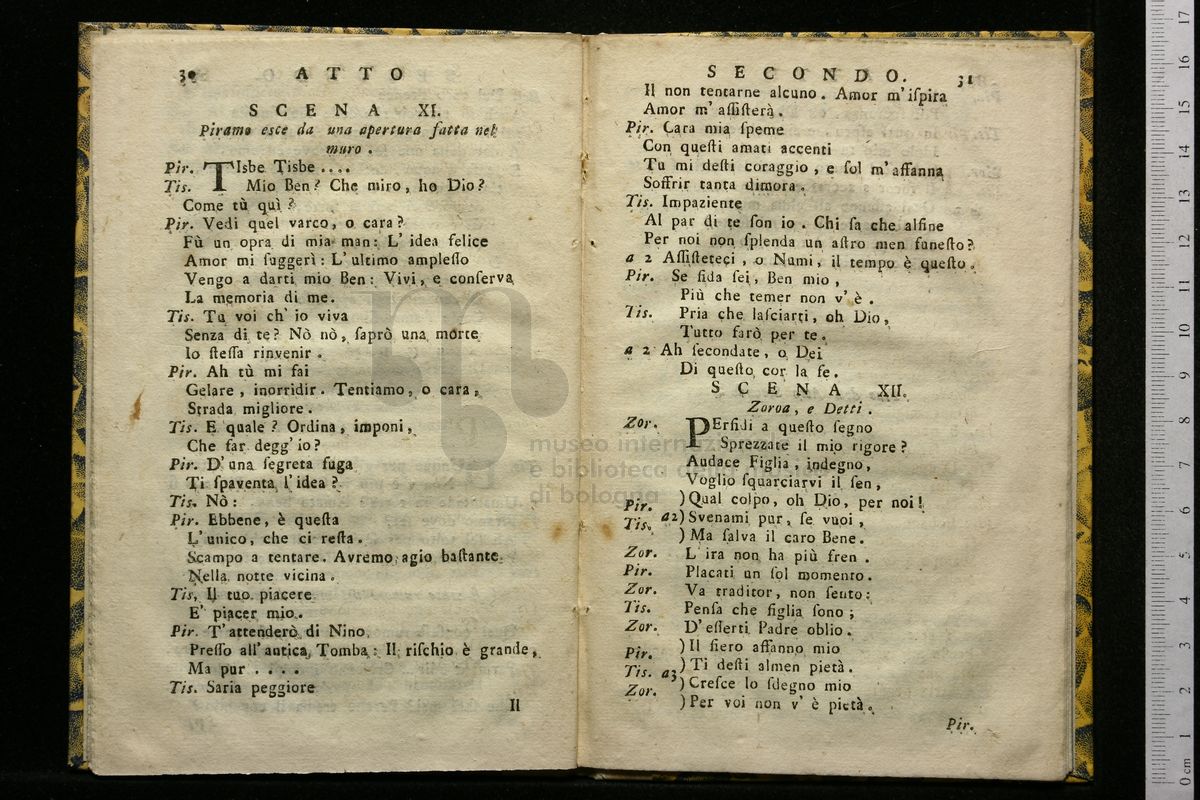 30 ATTO
SCENA XI.
Piramo esce da una apertura fatta nel
muro.
Pir. TIsbe Tisbe ....
Tis. Mio Ben? Che miro, ho Dio?
Come tù quì?
Pir. Vedi quel varco, o cara?
Fù un opra di mia man: L' idea felice
Amor mi ſuggerì: L' ultimo ampleſſo
Vengo a darti mio Ben: Vivi, e conſerva
La memoria di me.
Tis. Tu voi ch' io viva
Senza di te? Nò nò, ſaprò una morte
Io ſteſſa rinvenir.
Pir. Ah tù mi fai
Gelare, inorridir. Tentiamo, o cara,
Strada migliore.
Tis. E quale? Ordina, imponi,
Che far degg' io?
Pir. D' una ſegreta fuga
Ti ſpaventa l' idea?
Tis. Nò:
Pir. Ebbene, è queſta
L' unico, che ci reſta.
Scampo a tentare. Avremo agio baſtante
Nella notte vicina.
Tis. Il tuo piacere
E' piacer mio.
Pir. T' attenderò di Nino
Preſſo all' antica Tomba: Il riſchio è grande,
Ma pur ....
Tis. Saria peggiore
Il
SECONDO. 31
Il non tentarne alcuno. Amor m' iſpira
Amor m' aſſiſterà.
Pir. Cara mia ſpeme
Con queſti amati accenti
Tu mi deſti coraggio, e ſol m' affanna
Soffrir tanta dimora.
Tis. Impaziente
Al par di te ſon io. Chi ſa che alfine
Per noi non ſplenda un aſtro men funeſto?
a 2 Aſſiſteteci, o Numi, il tempo è queſto.
Pir. Se fida ſei, Ben mio,
Più che temer non v' è.
Tis. Pria che laſciarti, oh Dio,
Tutto farò per te.
a 2 Ah ſecondate, o Dei
Di queſto cor la fe.
SCENA XII.
Zoroa, e Detti.
Zor. PErfidi a queſto ſegno
Sprezzate il mio rigore?
Audace Figlia, indegno,
Voglio ſquarciarvi il ſen,
Pir. )Qual colpo, oh Dio, per noi!
Tis. a2)Svenami pur, ſe vuoi,
)Ma ſalva il caro Bene.
Zor. L' ira non ha più fren.
Pir. Placati un ſol momento.
Zor. Va traditor, non ſento:
Tis. Penſa che figlia ſono;
Zor. D' eſſerti Padre oblio.
Pir. )Il fiero affanno mio
Tis. a3 )Ti deſti almen pietà.
Zor. )Creſce lo ſdegno mio
)Per voi non v' è pietà.
Pir.
museo internaz
e biblioteca della
di bologna